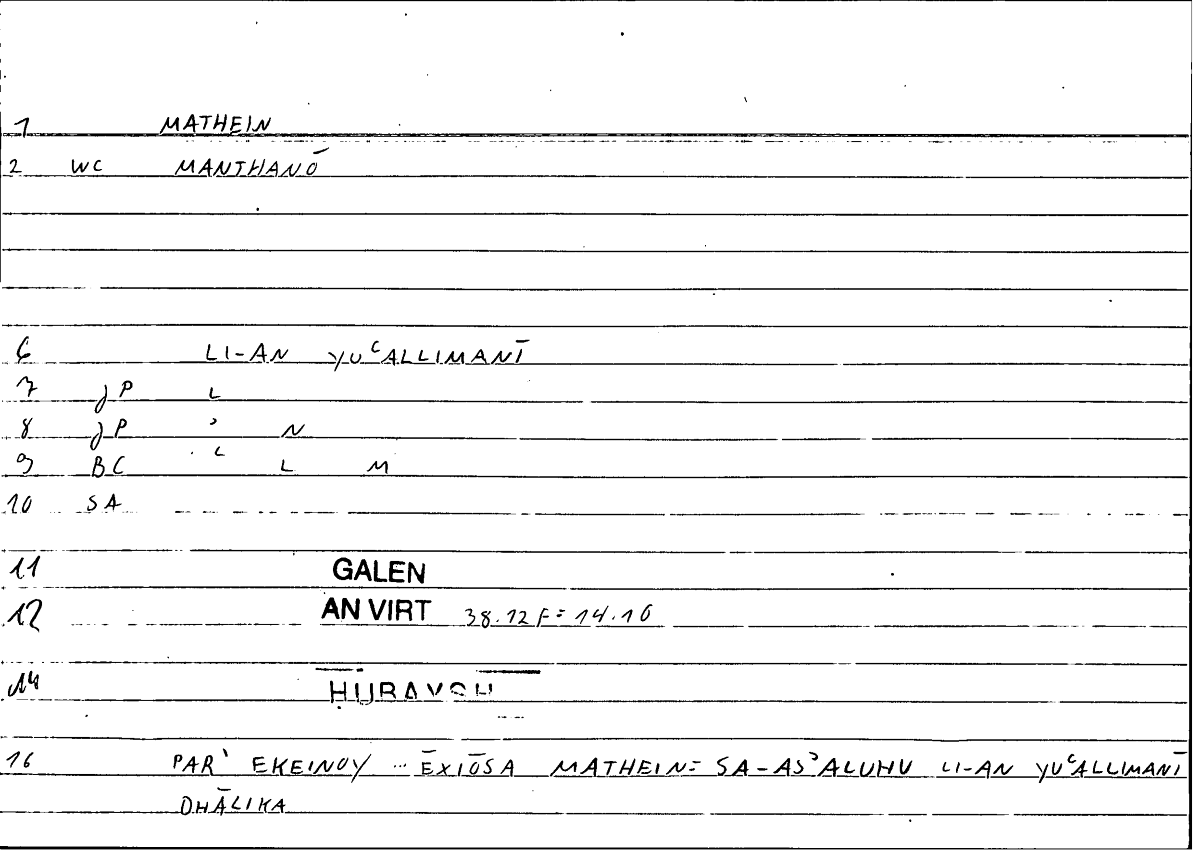 1 MATHEIN
2 WC MANTHANŌ
6 LI-AN YUᶜALLIMANĪ
7 JP L
8 JP ʾ N
9 BC ᶜ L M
10 SA
11 GALEN
12 AN VIRT 38.12 F = 14.10
14 ḤUBAYSH
16 PAR' EKEINOY ... ĒXIŌSA MATHEIN = SA-ASʾALUHU LI-AN YUᶜALLIMANĪ
DHĀLIKA